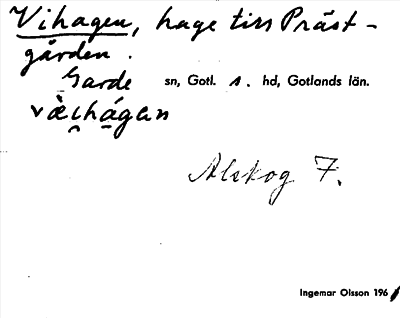 Vihagen, hage till Präst-
gården.
Garde sn, Gotl. s. hd, Gotlands län.
Alskog 7.
Ingemar Olsson 196